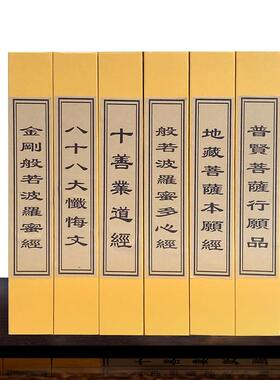 普賢菩薩行願品
地藏菩薩本願經
般若波羅蜜多心經
十善業道經
八十八大懺悔文
金剛般若波羅蜜經